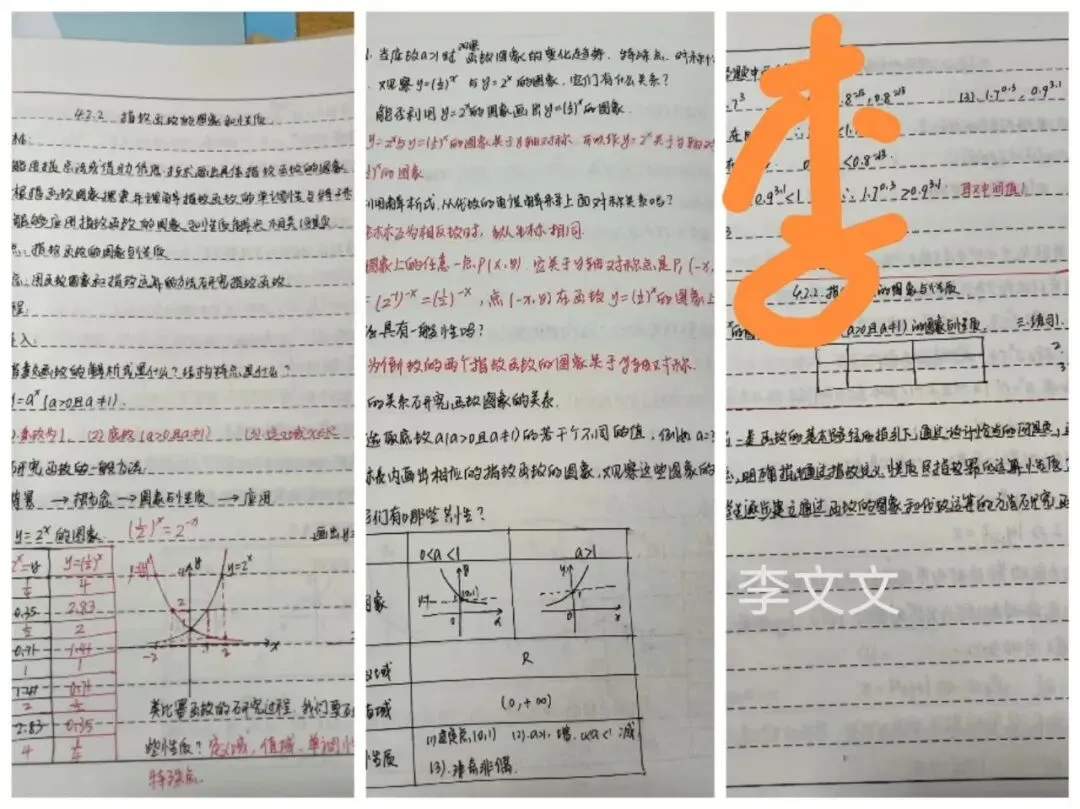 4.2.2 指数函数的图象和性质
能用描点法或借助信息技术画出具体指数函数的图象
根据函数图象探索并理解指数函数的单调性与特殊点
能够应用指数函数的图象和性质解决相关问题
指数函数的图象与性质
用函数图象和指数运算的方法研究指数函数
程:
入:
指数函数的解析式是什么?结构特点是什么?
=aˣ(a>0且a≠1).
系数为1. (2)底数(a>0且a≠1)
研究函数的一般方法
背景 → 概念 → 图象与性质 → 应用
y=2ˣ的图象. (½)ˣ=2⁻ˣ 画出y=
2ˣ=y y=(½)ˣ
¼ 4
0.35 2.83
½ 2
0.71 1.41
1 1
1.41 0.71
2 ½
2.83 0.35
4 ¼
y y=2ˣ
-2 1 2 x
类比幂函数的研究过程,我们要研
些性质?定义域,值域,单调性
特殊点.
当底数a>1时 函数图象的变化趋势.特殊点.对称性
观察y=(½)ˣ与y=2ˣ的图象.它们有什么关系?
能否利用y=2ˣ的图象画出y=(½)ˣ的图象
y=2ˣ与y=(½)ˣ的图象关于y轴对称.可以作y=2ˣ关于y轴对
)ˣ的图象
利用解析式,从代数的角度解释上面对称关系吗?
互为相反数时,纵坐标相同.
图象上的任意一点P(x,y).它关于y轴对称点是P₁(-x,
=(2⁻¹)⁻ˣ=(½)⁻ˣ,点(-x,y)在函数y=(½)ˣ的图象上
具有一般性吗?
为倒数的两个指数函数的图象关于y轴对称.
的关系研究函数图象的关系.
选取底数a(a>0且a≠1)的若干个不同的值,例如a=
标系内画出相应的指数函数的图象,观察这些图象的
它们有哪些共性?
0<a<1 a>1
图象 y (0,1) 0 x y 1 0 x
义域 R
值域 (0,+∞)
性质 (1)过定点(0,1) (2).a>1,增.0<a<1减
(3).非奇非偶.
题中
.7³ (3).1.7^0.3, 0.9^3.1
0.9^3.1<1 ∴1.7^0.3>0.9^3.1 取中间值1
李
4.2.2.指 的图象与性质
(a>0且a≠1)的图象与性质. 三.练习.
2
3
一是函数的基本路径的指引下,通过设计恰当的问题串,
明确指
学生逐步建立通过函数的图象和代数运算的方法研究函
李文文